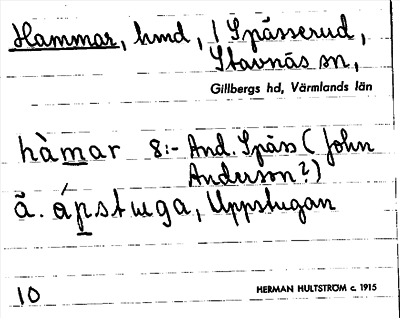 Hammar, hmd, i Spässerud,
Stavnäs sn,
Gillbergs hd, Värmlands län
hàmar 8:- And. Späss (John
Anderson?)
ã. ápstuga, Uppstugan
10
HERMAN HULTSTRÖM c. 1915